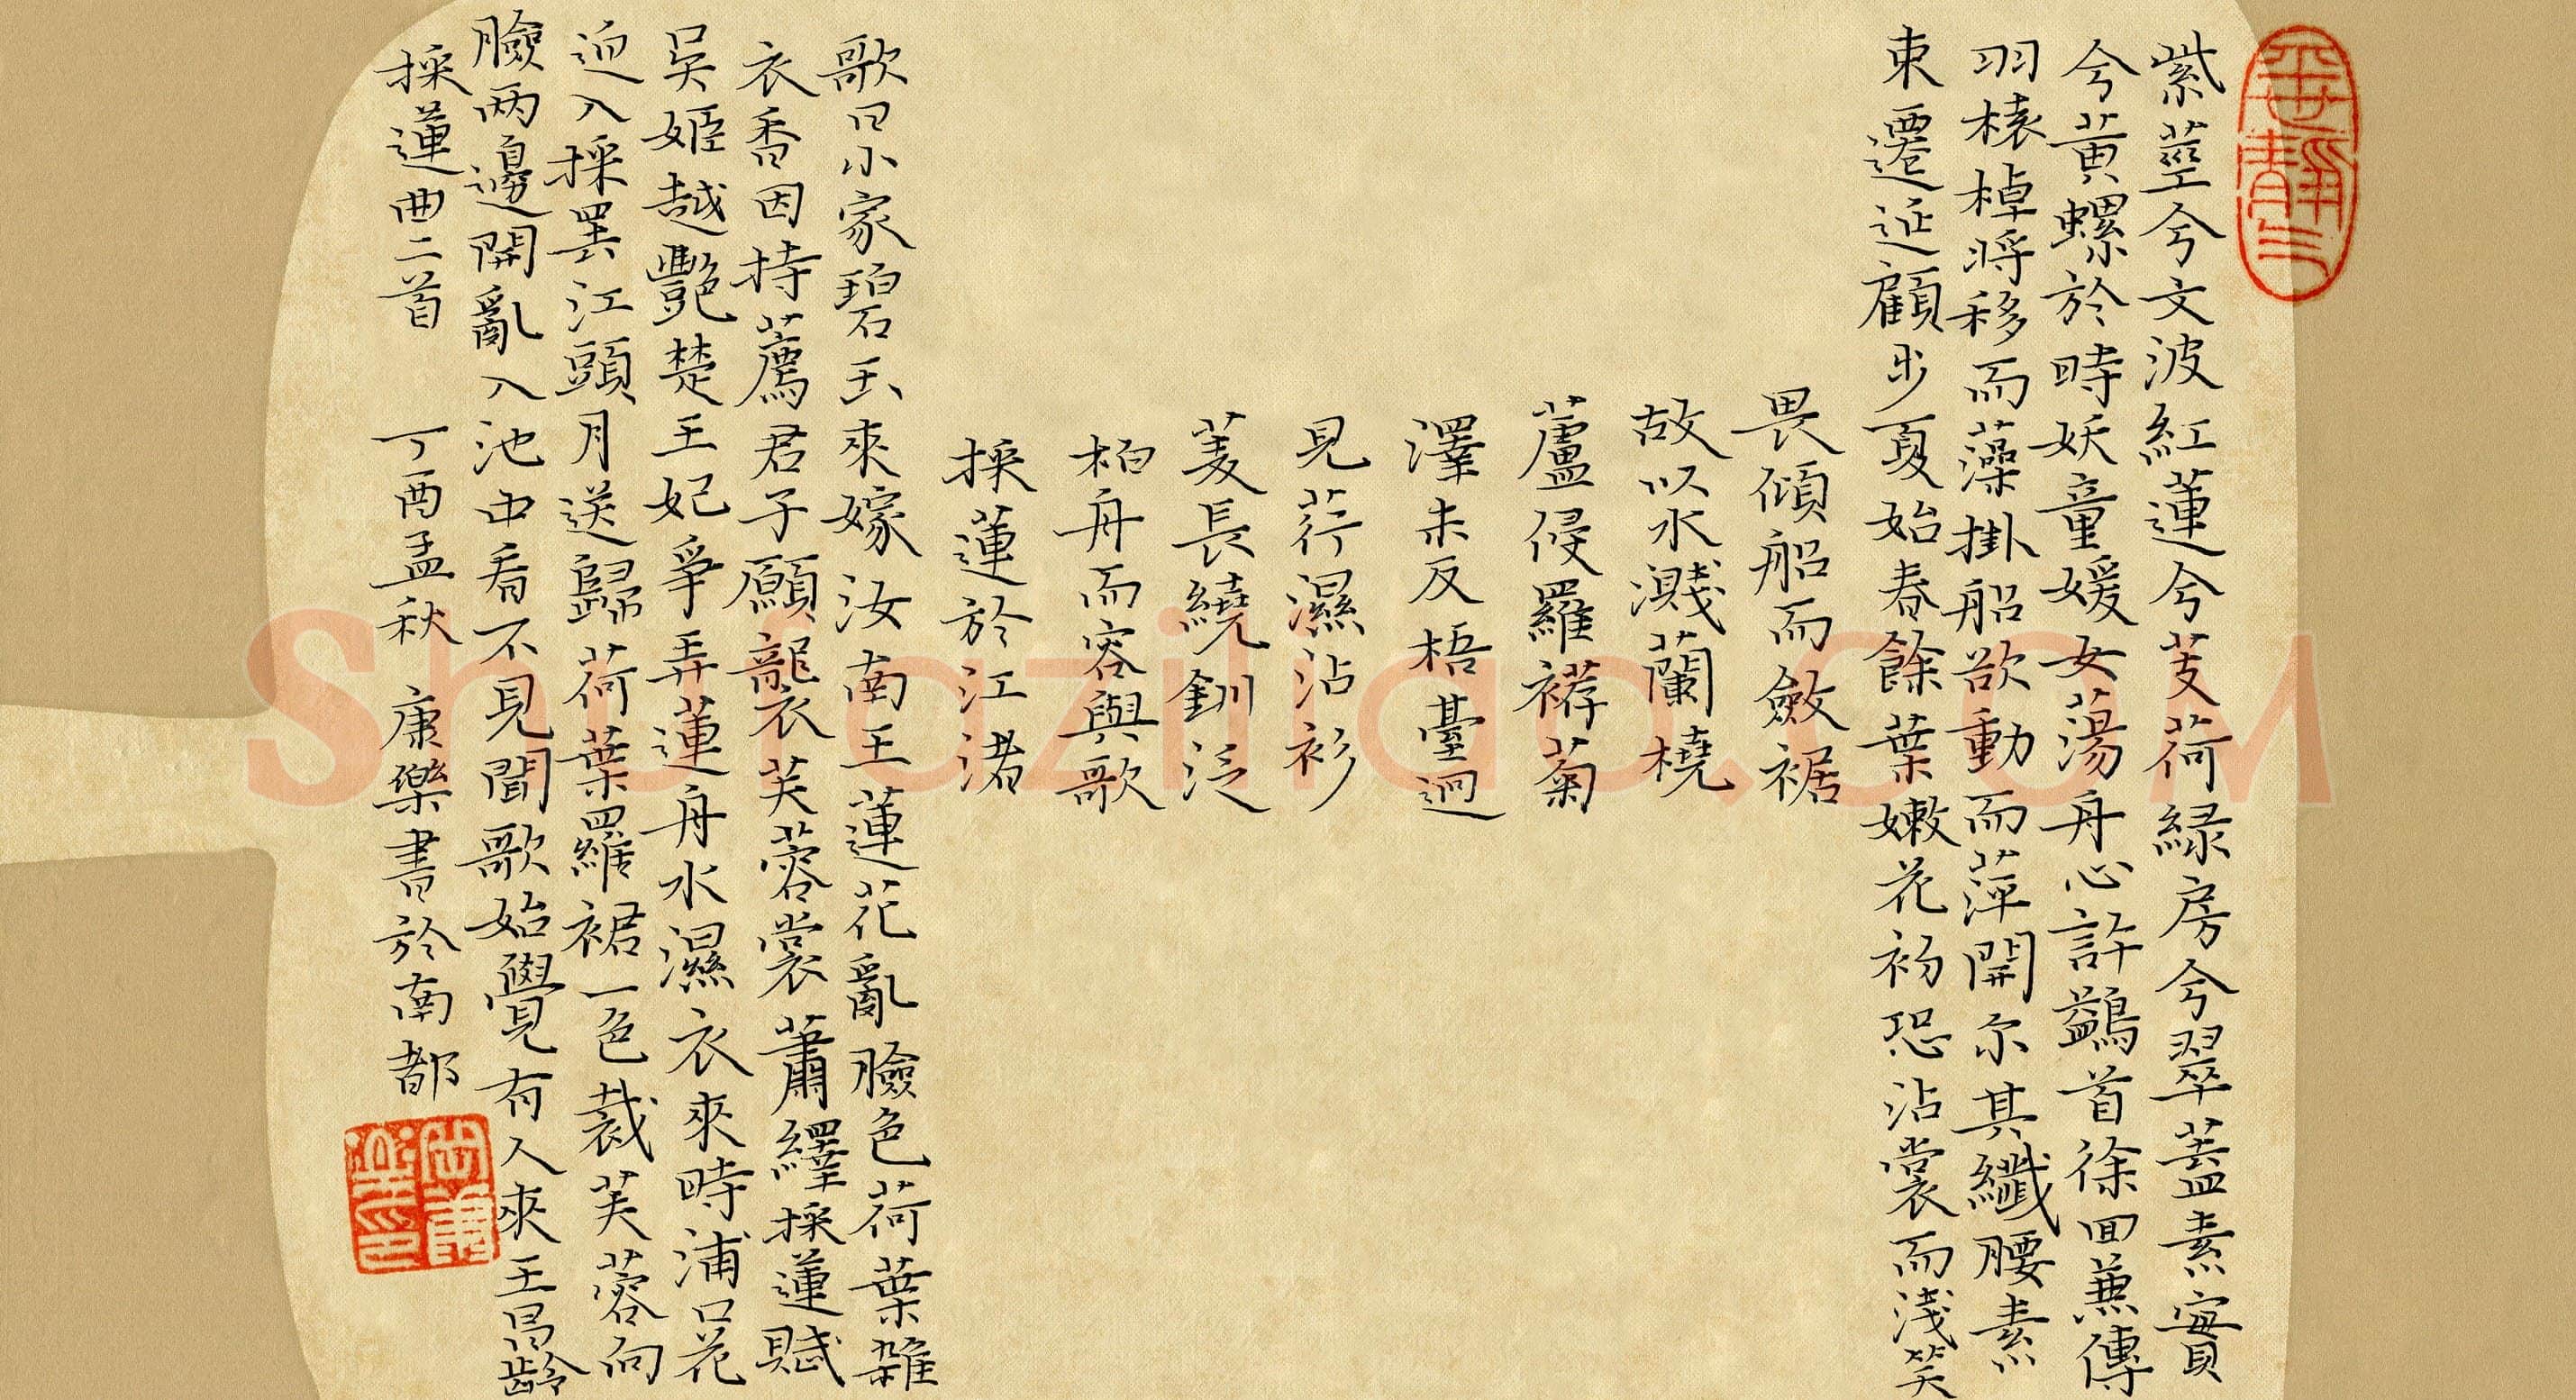 紫莖兮文波紅蓮兮芰荷緑房兮翠蓋素實
兮黃螺於時妖童媛女蕩舟心許鷁首徐回兼傳
羽棹將移而藻掛船欲動而萍開尔其纖腰素
束遷延顧步夏始春餘葉嫩花初恐沾裳而淺笑
畏傾船而斂裾
故以水濺蘭橈
蘆侵羅襦菊
澤未反梧臺迥
見荇濕沾衫
菱長繞釧泛
柏舟而容與歌
採蓮於江渚
歌曰小家碧玉來嫁汝南王蓮花亂臉色荷葉雜
衣香因持薦君子願襲衣芙蓉裳蕭繹採蓮賦
吳姬越艷楚王妃爭弄蓮舟水濕衣來時浦口花
迎入採罷江頭月送歸荷葉羅裙一色裁芙蓉向
臉兩邊開亂入池中看不見聞歌始覺有人來王昌齡
採蓮曲二首 丁酉孟秋 康樂書於南都
Shufaziliao.COM